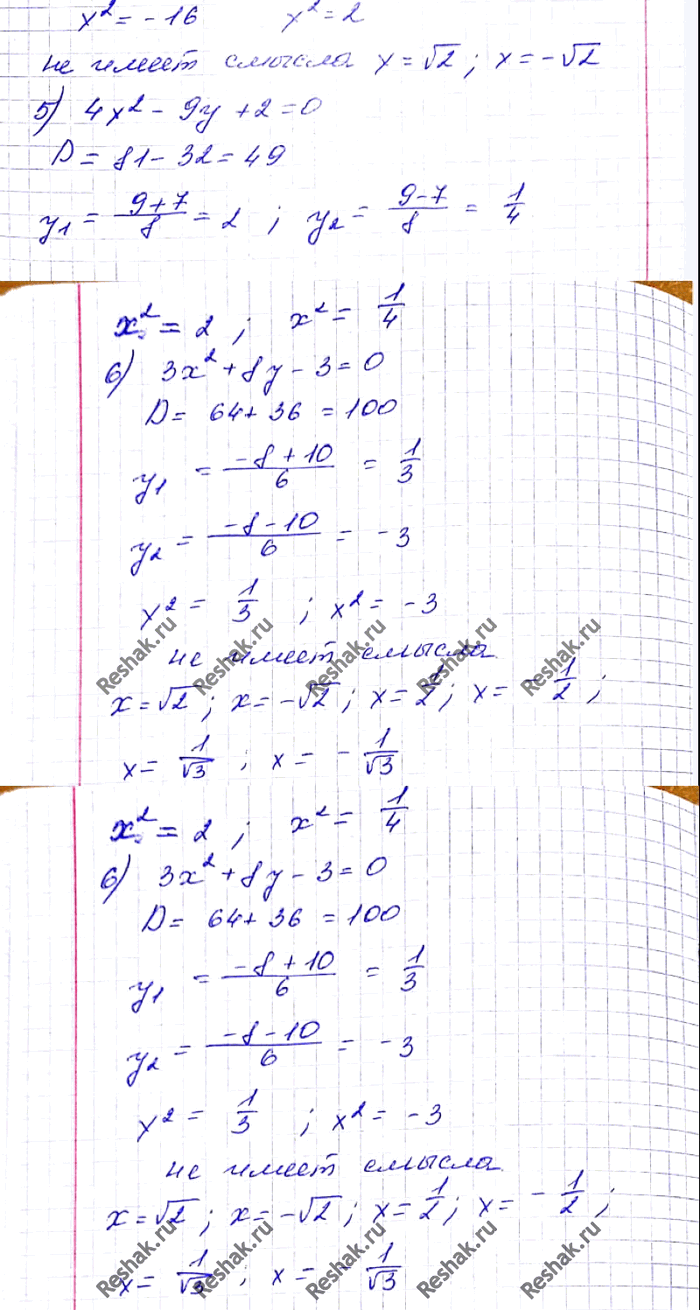 x² = -16 x² = 2
не имеет смысла x = √2 ; x = -√2
5) 4x² - 9y + 2 = 0
D = 81 - 32 = 49
y₁ = (9+7)/8 = 2 ; y₂ = (9-7)/8 = 1/4
x² = 2 ; x² = 1/4
6) 3x² + 8y - 3 = 0
D = 64 + 36 = 100
y₁ = (-8 + 10)/6 = 1/3
y₂ = (-8 - 10)/6 = -3
x² = 1/3 ; x² = -3
не имеет смысла
Reshak.ru Reshak.ru Reshak.ru Reshak.ru Reshak.ru
x = √2 ; x = -√2 ; x = 1/2 ; x = -1/2 ;
x = 1/√3 ; x = -1/√3
x² = 2 ; x² = 1/4
6) 3x² + 8y - 3 = 0
D = 64 + 36 = 100
y₁ = (-8 + 10)/6 = 1/3
y₂ = (-8 - 10)/6 = -3
x² = 1/3 ; x² = -3
не имеет смысла
x = √2 ; x = -√2 ; x = 1/2 ; x = -1/2 ;
Reshak.ru Reshak.ru Reshak.ru Reshak.ru Reshak.ru
x = 1/√3 ; x = -1/√3